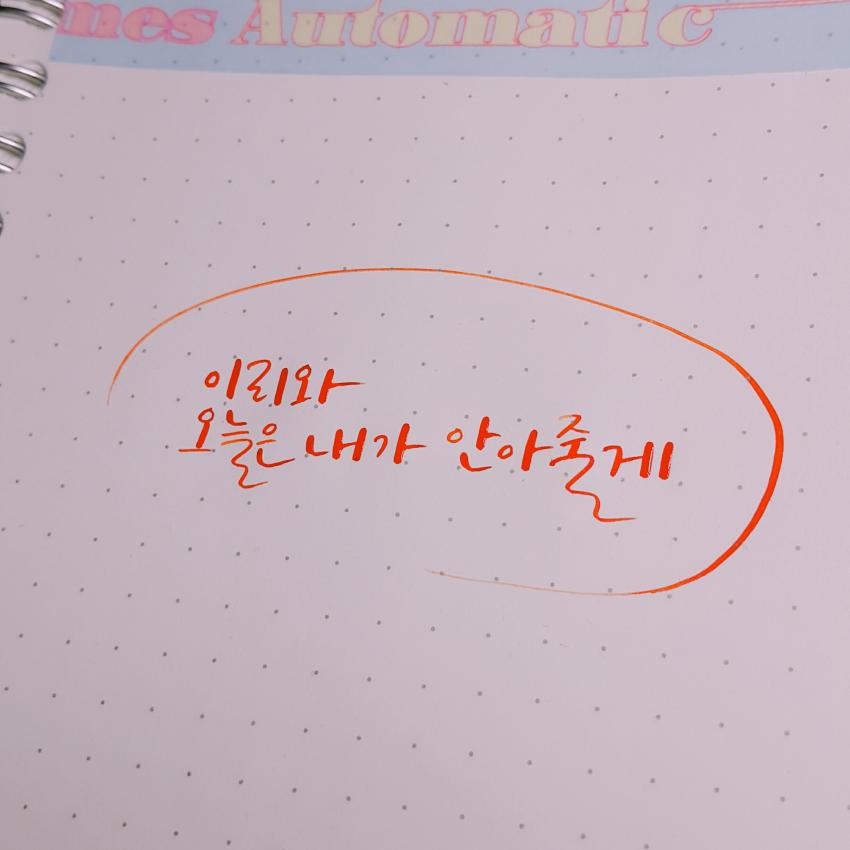 mes Automatic
이리와
오늘은 내가 안아줄게